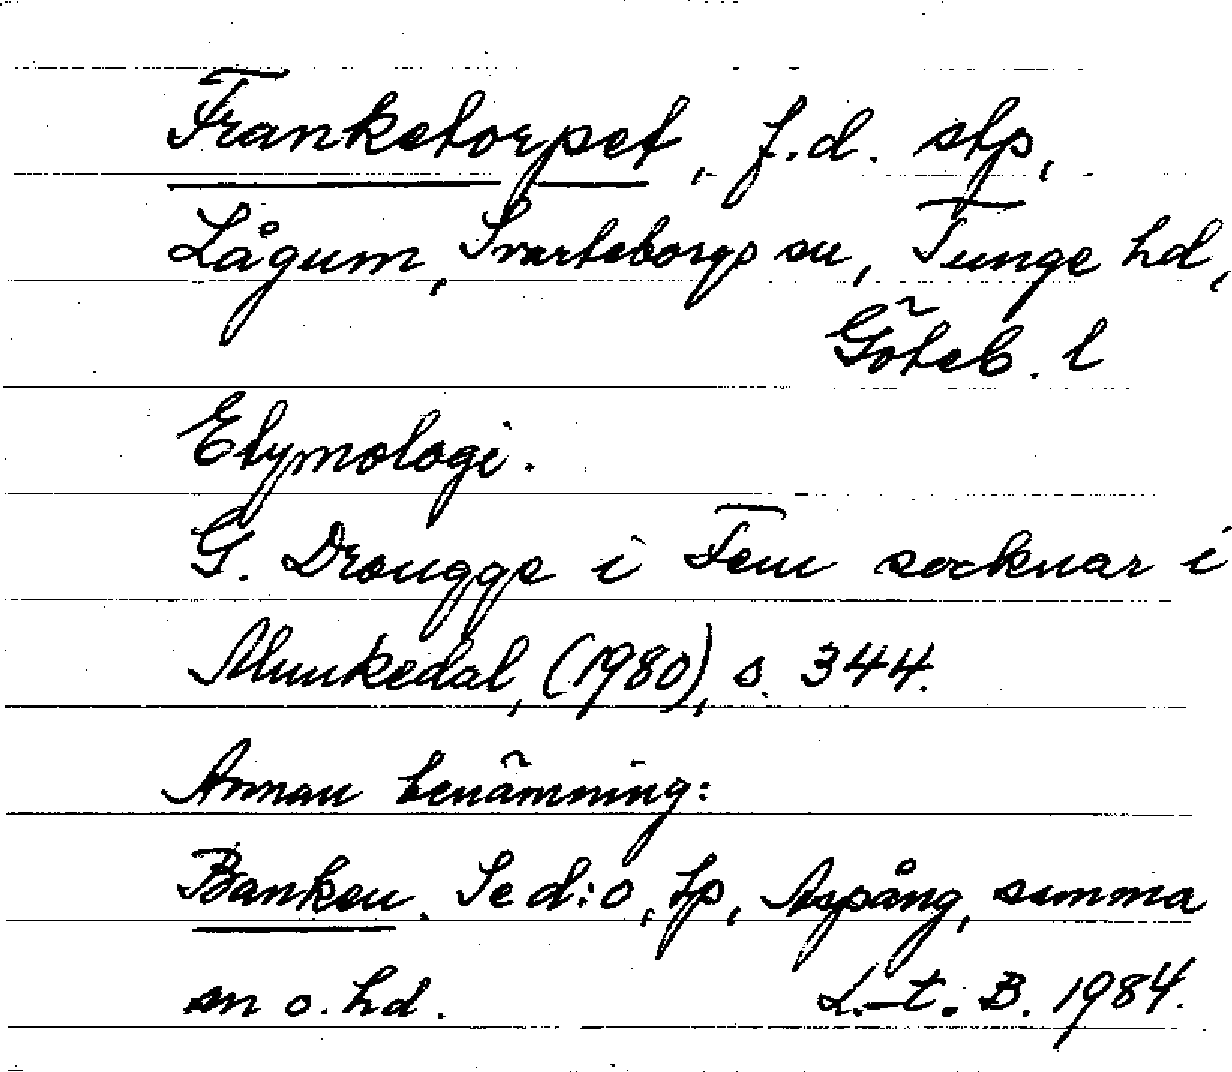 Franketorpet, f.d. stp,
Lågum, Svarteborgs sn, Tunge hd,
Göteb. l
Etymologi.
G. Drougge i Fem socknar i
Munkedal, (1980), s. 344.
Annan benämning:
Banken. Se d:o, tp, Aspång, samma
sn o. hd. L-t. B. 1984.